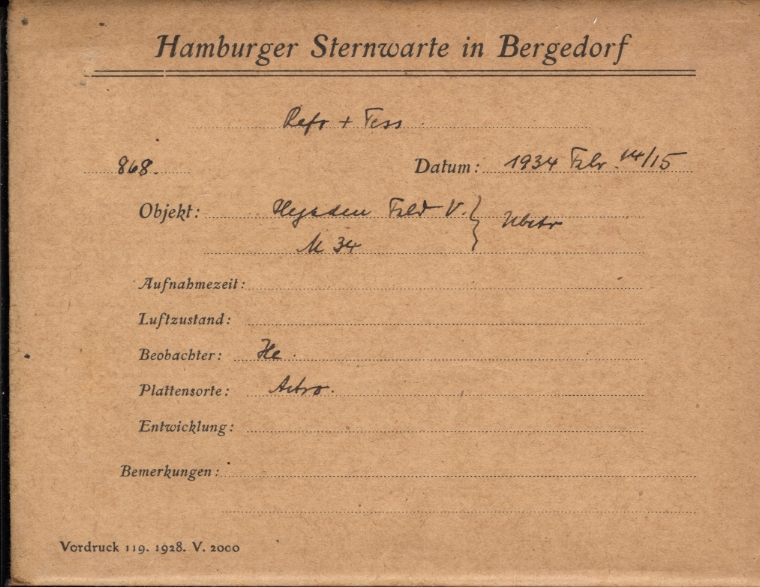 Hamburger Sternwarte in Bergedorf
Refr + Tess
868. Datum: 1934 Febr. 14/15
Objekt: Hyaden Feld V. }
M 34
Aufnahmezeit:
Luftzustand:
Beobachter: He.
Plattensorte: Astro.
Entwicklung:
Bemerkungen:
Vordruck 119. 1928. V. 2000